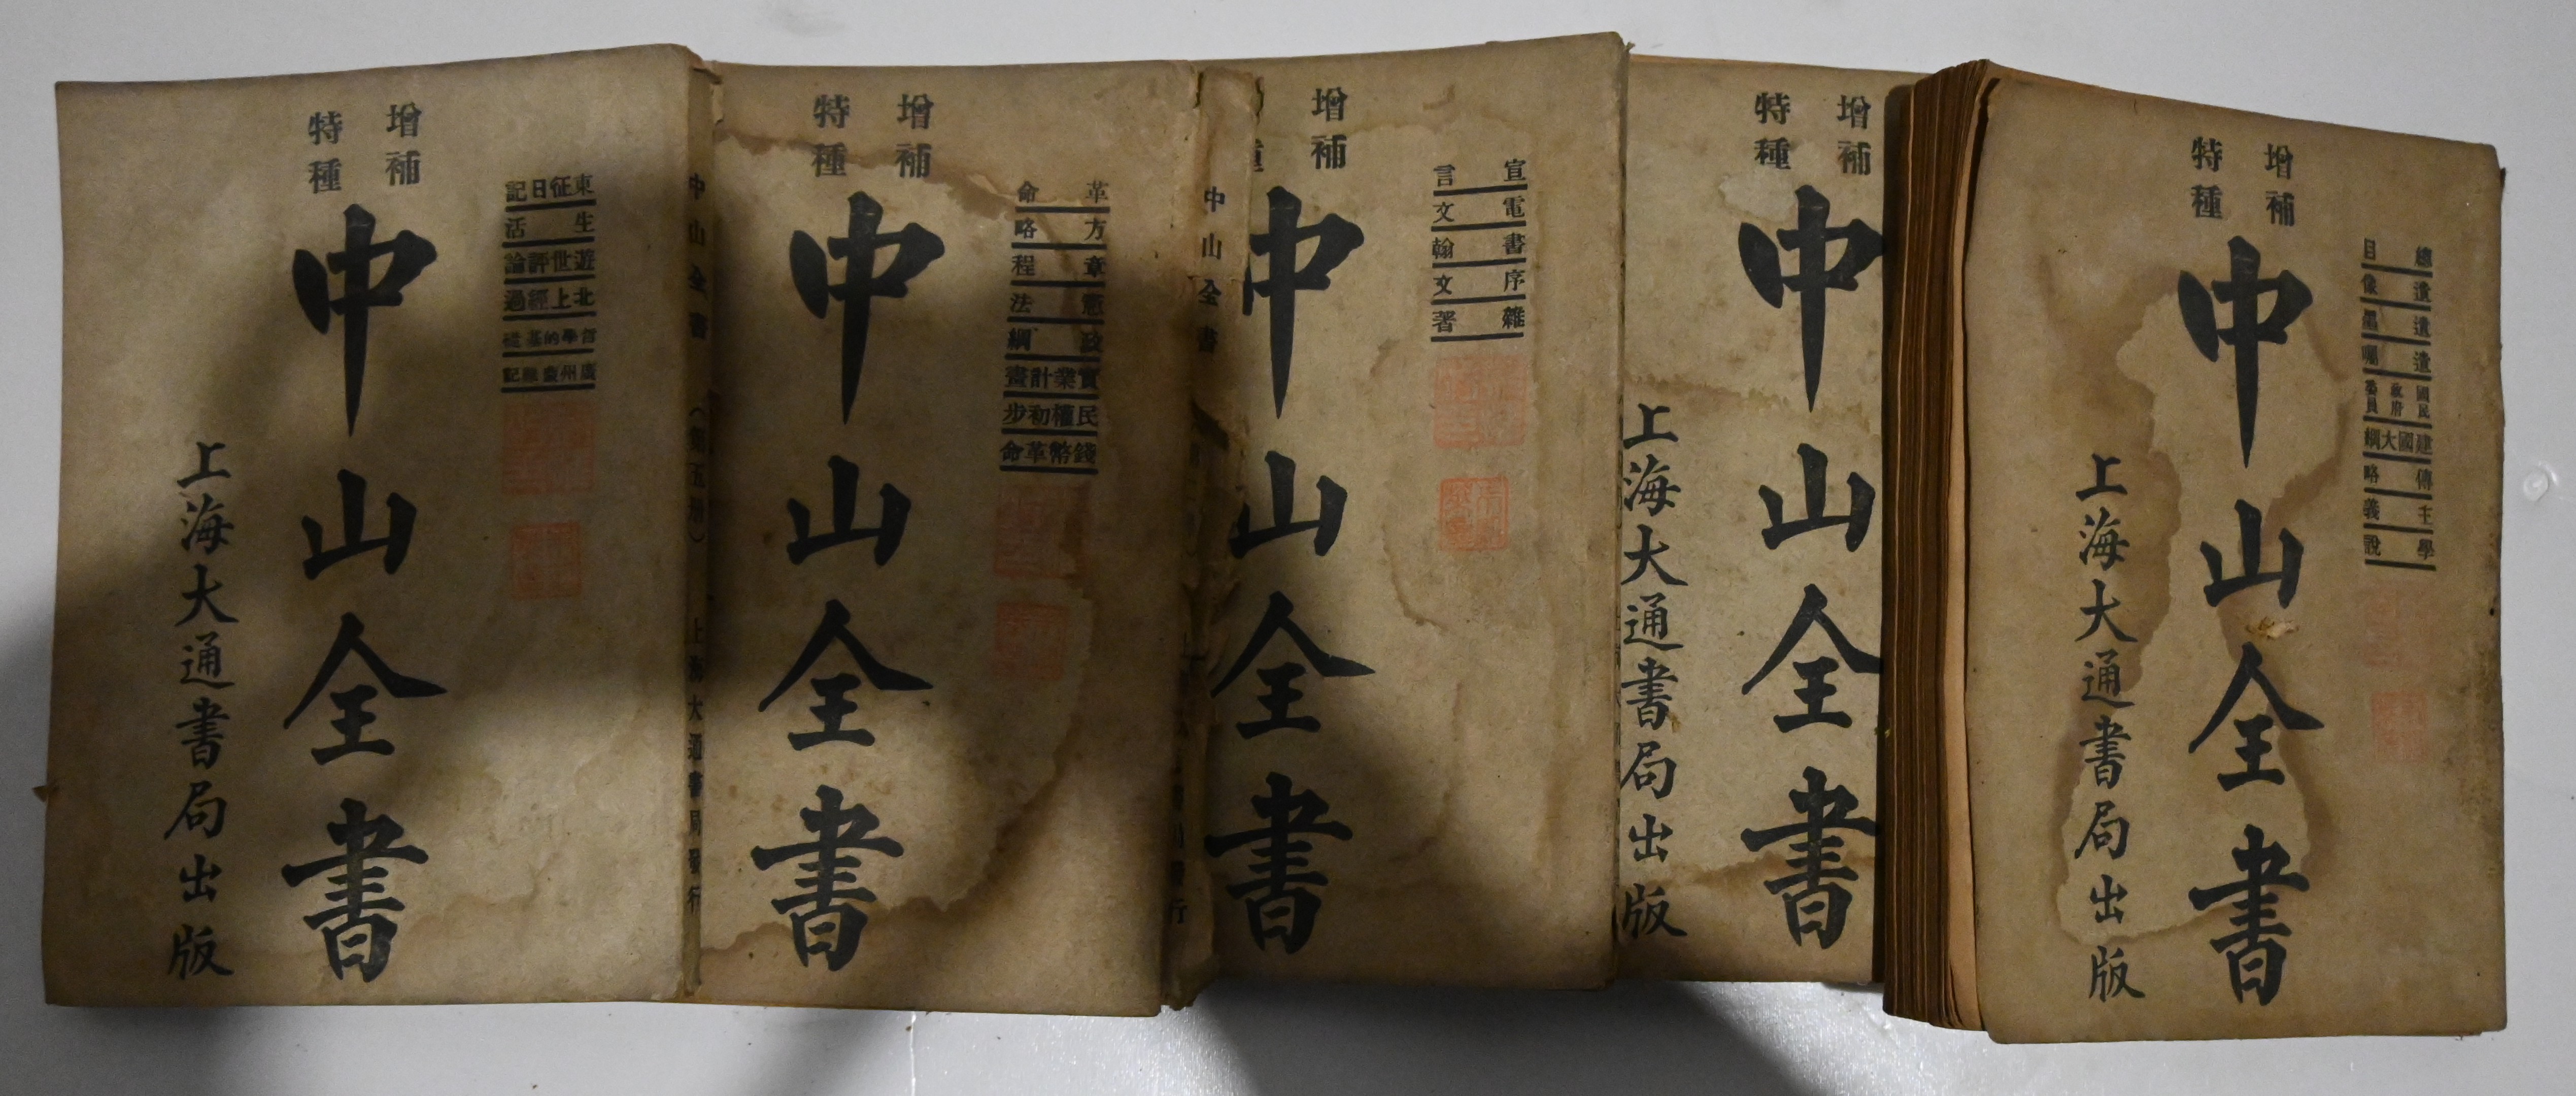 增補
特種
總目
遺像
遺墨
遺囑
國民政府委員
建國大綱
傳略
主義
學說
中山全書
上海大通書局出版
增補
特種
中山全書
上海大通書局出版
增補
宣言
電文
書翰
序文
雜著
中山全書
中山全書
增補
特種
革命
方略
章程
憲法
政綱
實業計畫
民權初步
錢幣革命
中山全書
中山全書
上海大通書局發行
增補
特種
東征日記
生活
遊世評論
北上經過
哲學的基礎
廣州蒙難記
中山全書
上海大通書局出版